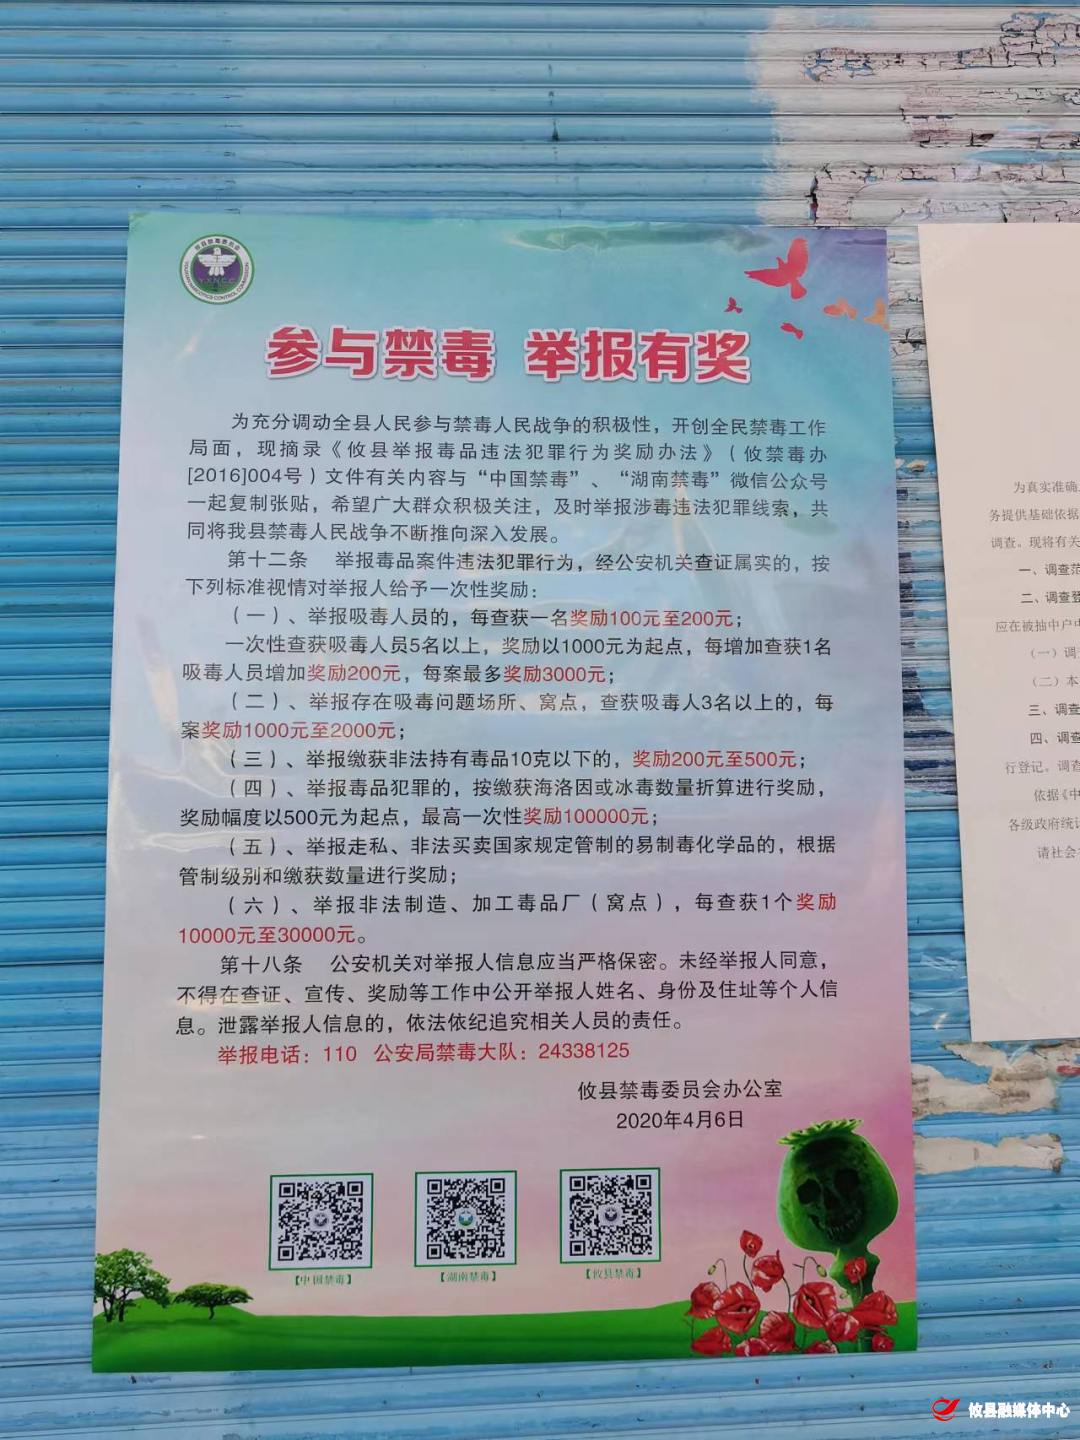 攸县禁毒委员会
YXNCC
参与禁毒 举报有奖
为充分调动全县人民参与禁毒人民战争的积极性，开创全民禁毒工作
局面，现摘录《攸县举报毒品违法犯罪行为奖励办法》（攸禁毒办
[2016]004号）文件有关内容与“中国禁毒”、“湖南禁毒”微信公众号
一起复制张贴，希望广大群众积极关注，及时举报涉毒违法犯罪线索，共
同将我县禁毒人民战争不断推向深入发展。
第十二条 举报毒品案件违法犯罪行为，经公安机关查证属实的，按
下列标准视情对举报人给予一次性奖励：
（一）、举报吸毒人员的，每查获一名奖励100元至200元；
一次性查获吸毒人员5名以上，奖励以1000元为起点，每增加查获1名
吸毒人员增加奖励200元，每案最多奖励3000元；
（二）、举报存在吸毒问题场所、窝点，查获吸毒人3名以上的，每
案奖励1000元至2000元；
（三）、举报缴获非法持有毒品10克以下的，奖励200元至500元；
（四）、举报毒品犯罪的，按缴获海洛因或冰毒数量折算进行奖励，
奖励幅度以500元为起点，最高一次性奖励100000元；
（五）、举报走私、非法买卖国家规定管制的易制毒化学品的，根据
管制级别和缴获数量进行奖励；
（六）、举报非法制造、加工毒品厂（窝点），每查获1个奖励
10000元至30000元。
第十八条 公安机关对举报人信息应当严格保密。未经举报人同意，
不得在查证、宣传、奖励等工作中公开举报人姓名、身份及住址等个人信
息。泄露举报人信息的，依法依纪追究相关人员的责任。
举报电话：110 公安局禁毒大队：24338125
攸县禁毒委员会办公室
2020年4月6日
【中国禁毒】
【湖南禁毒】
【攸县禁毒】
为真实准确
务提供基础依据
调查。现将有关
一、调查范
二、调查登
应在被抽中户中
（一）调
（二）本
三、调查
四、调查
行登记。调查
依据《中
各级政府统计
请社会
攸县融媒体中心